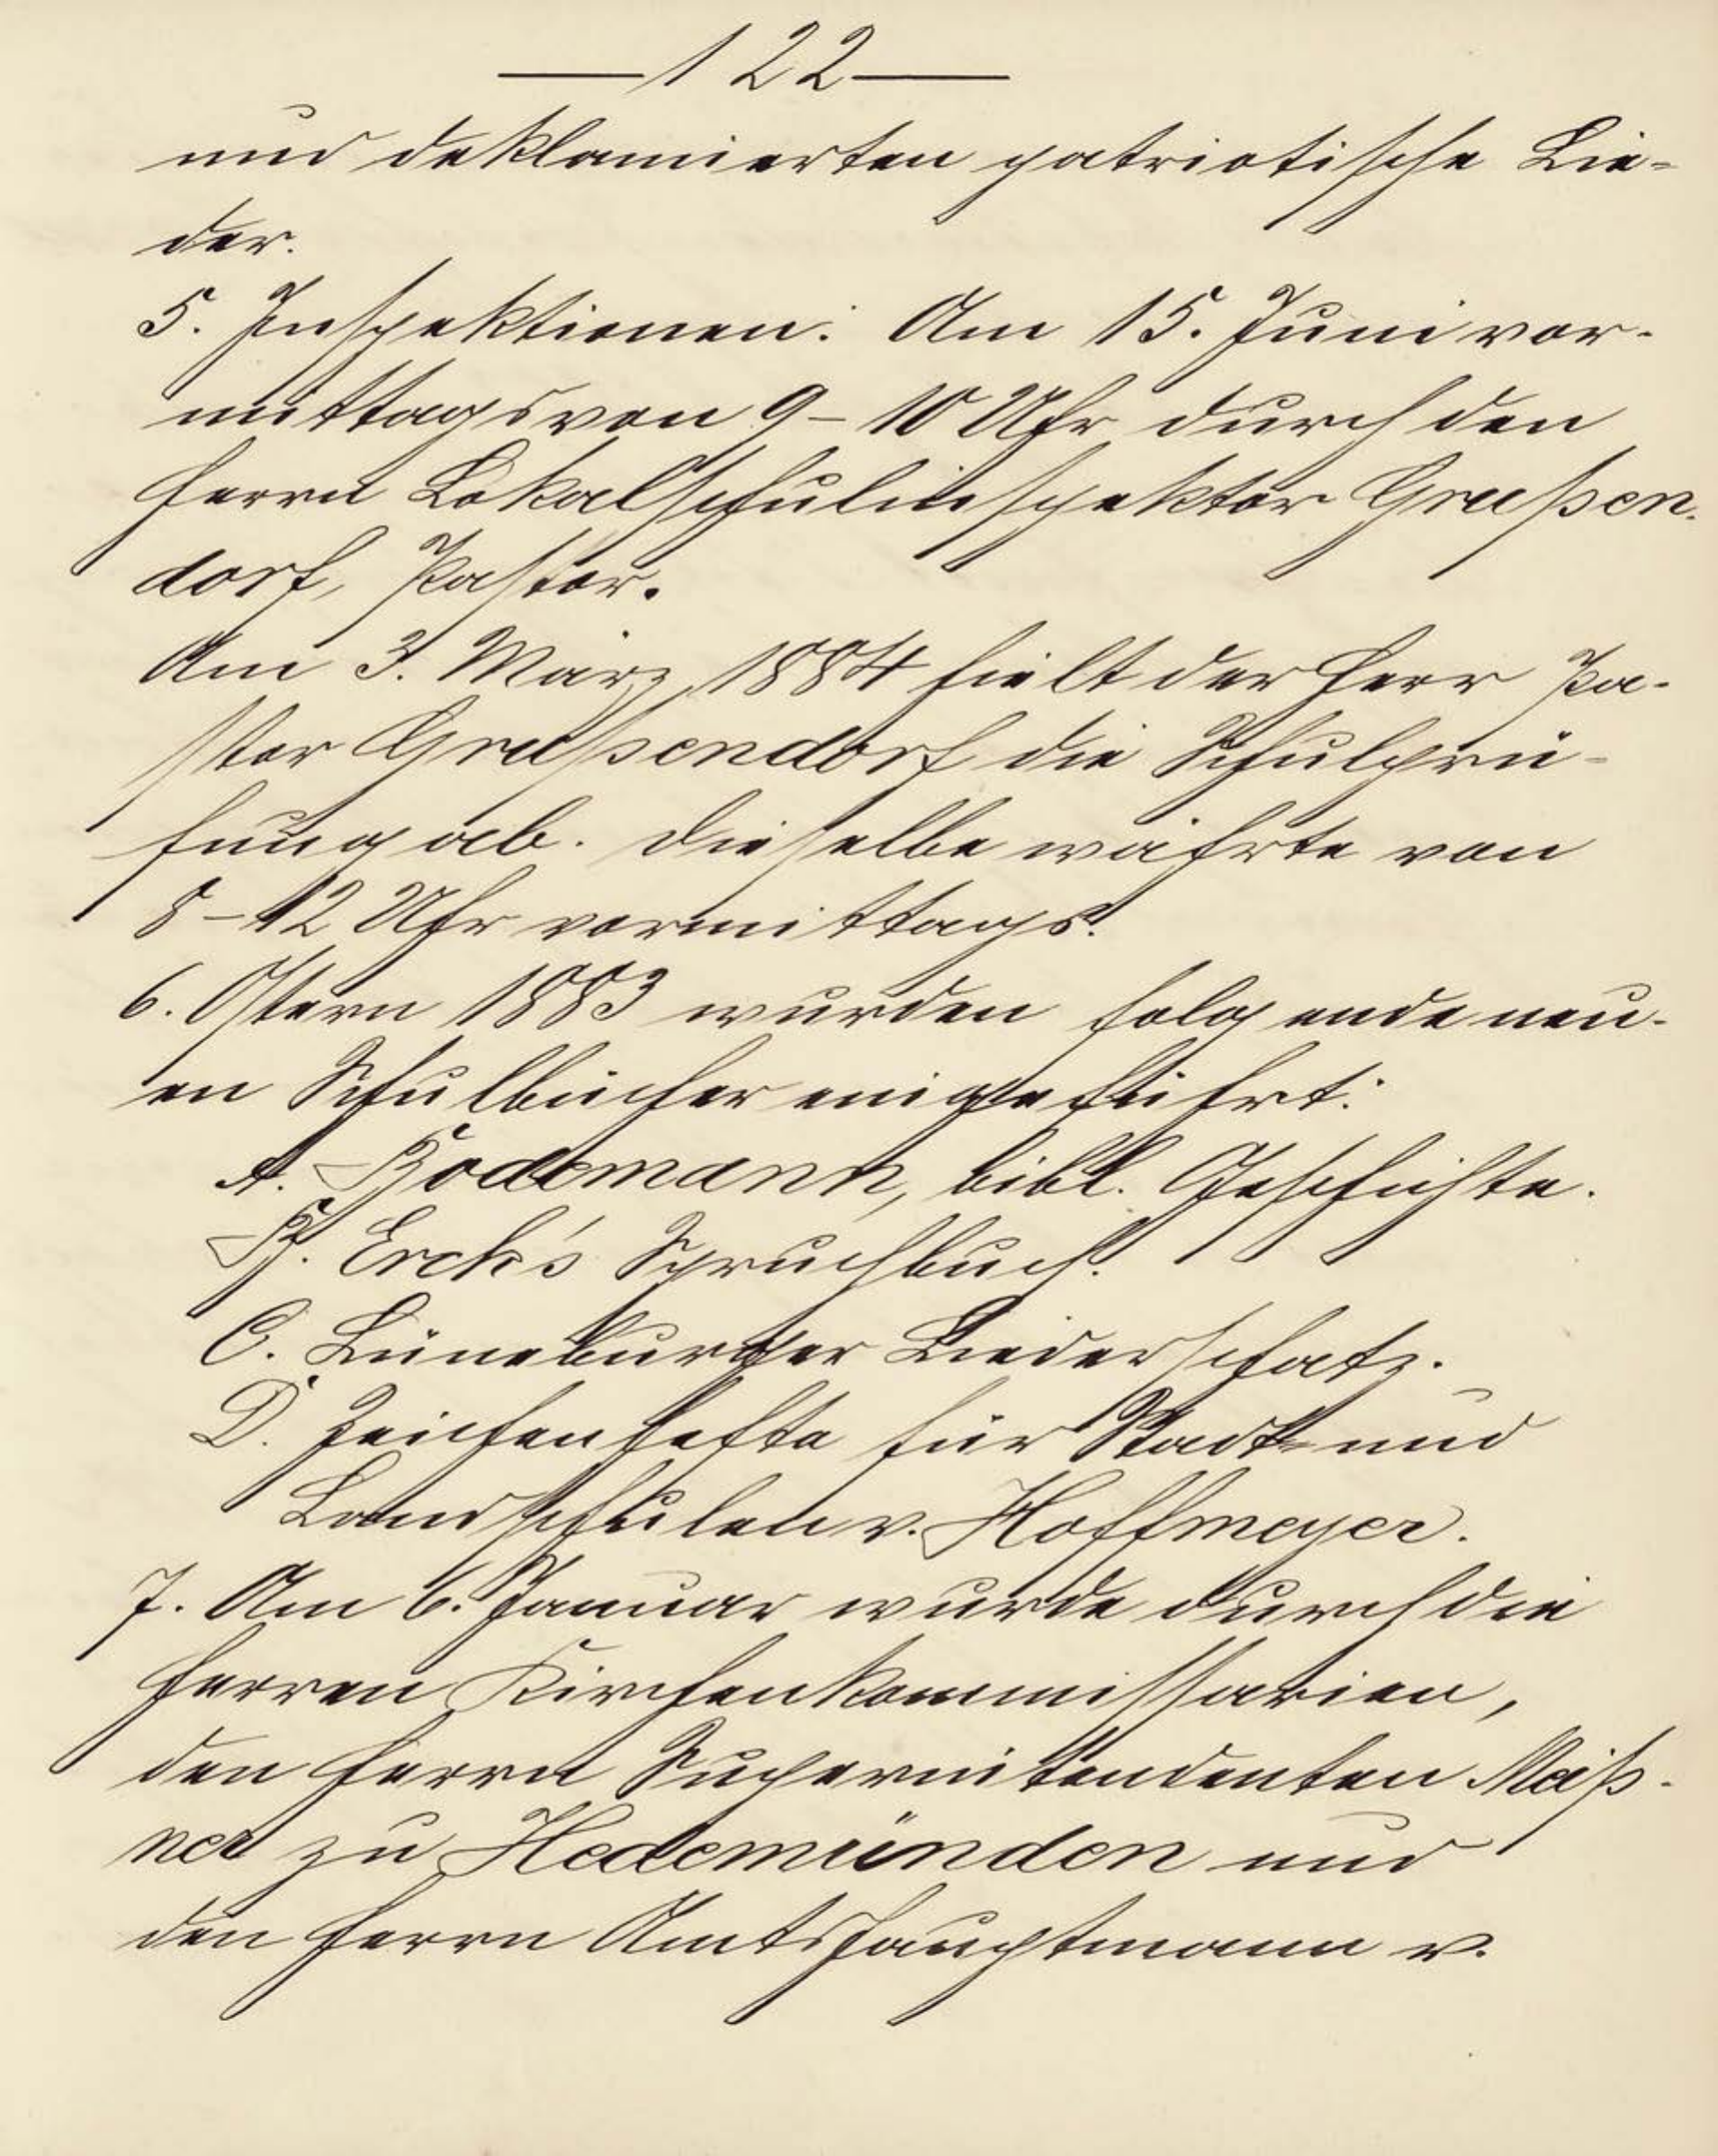 —122—
und deklamierten patriotische Lie-
der.
5. Inspektionen: Am 15. Juni vor-
mittags von 9-10 Uhr durch den
Herrn Lokalschulinspektor Grußen-
dorf, Pastor.
Am 3. März 1884 hielt der Herr Pa-
stor Grußendorf die Schulprü-
fung ab. Dieselbe währte von
8-12 Uhr vormittags.
6. Ostern 1883 wurden folgende neu-
en Schulbücher eingeführt:
A. Bodemann, bibl. Geschichte.
B. Erck's Spruchbuch.
C. Lüneburger Liederschatz.
D. Zeichenhefte für Stadt- und
Landschulen v. Hoffmeyer.
7. Am 6. Januar wurde durch die
Herren Kirchenkommissarien,
den Herrn Superintendenten Meiß-
ner zu Hedemünden und
den Herrn Amtshauptmann v.